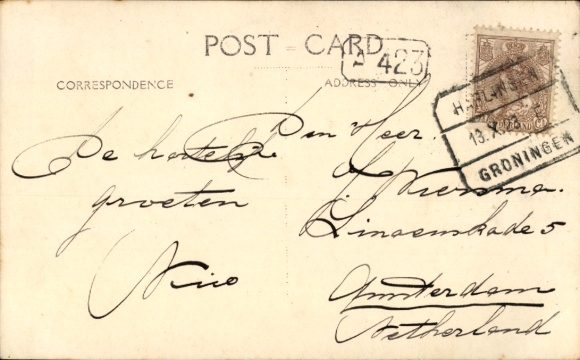 POST CARD
A 423
CORRESPONDENCE
ADDRESS ONLY
HARLINGEN
13.X
GRONINGEN
De hartelijke
groeten
Nico
Den Heer
J. Wiersma.
Linnaeuskade 5
Amsterdam
Netherland